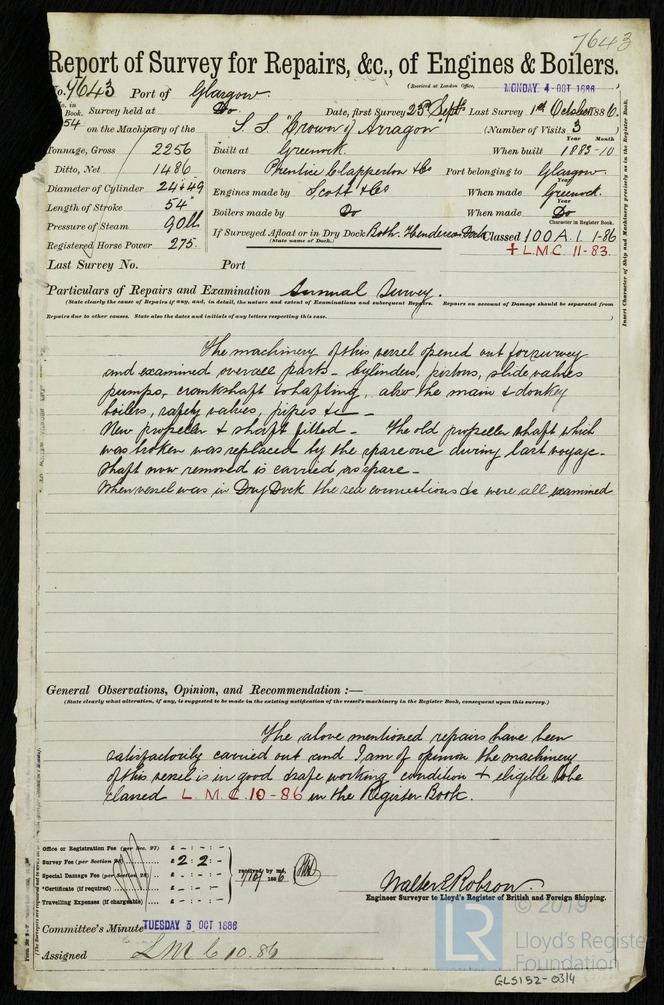 7643
Report of Survey for Repairs, &c., of Engines & Boilers.
(Received at London Office, MONDAY 4 OCT 1886
No. 7643 Port of Glasgow
No. in Book. Survey held at Do Date, first Survey 25th Sept. Last Survey 1st October 1886.
54 on the Machinery of the S.S. "Crown of Arragon" (Number of Visits 3
Year Month
Tonnage, Gross 2256 Built at Greenock When built 1883-10
Ditto, Net 1486 Owners Prentice Clapperton & Co Port belonging to Glasgow
Year
Diameter of Cylinder 24 & 49 Engines made by Scott & Co When made Greenock
Year
Length of Stroke 54" Boilers made by Do When made Do
Character in Register Book.
Pressure of Steam 90 lb If Surveyed Afloat or in Dry Dock Both. Henderson Dock Classed 100 A.1. 1-86
(State name of Dock.)
Registered Horse Power 275. + L.M.C. 11-83.
Last Survey No. Port
Insert Character of Ship and Machinery precisely as in the Register Book.
Particulars of Repairs and Examination Annual Survey.
(State clearly the cause of Repairs if any, and, in detail, the nature and extent of Examinations and subsequent Repairs. Repairs on account of Damage should be separated from
Repairs due to other causes. State also the dates and initials of any letters respecting this case. )
The machinery of this vessel opened out for survey
and examined over all parts - Cylinders, pistons, slide valves
pumps, crankshaft & shafting, also the main & donkey
boilers, safety valves, pipes &c -
New propeller & shaft fitted - The old propeller shaft which
was broken was replaced by the spare one during last voyage -
Shaft now removed is carried as spare -
When vessel was in Dry Dock the sea connections &c were all examined
General Observations, Opinion, and Recommendation :—
(State clearly what alteration, if any, is suggested to be made in the existing notification of the vessel's machinery in the Register Book, consequent upon this survey.)
The above mentioned repairs have been
satisfactorily carried out and I am of opinion the machinery
of this vessel is in good & safe working condition & eligible to be
classed L.M.C. 10-86 in the Register Book.
Office or Registration Fee (per Sec. 27) £ - : - : -
Survey Fee (per Section 28) £ 2 : 2 : -
Special Damage Fee (per Section 28) £ - : - : -
*Certificate (if required) £ - : - : -
Travelling Expenses (if chargeable) £ - : - : -
received by me,
1/10/1886
Walter E Robson.
Engineer Surveyor to Lloyd's Register of British and Foreign Shipping.
Committee's Minute TUESDAY 5 OCT 1886
Assigned L M C 10.86
LR
© 2019
Lloyd's Register
Foundation
GLS152-0314